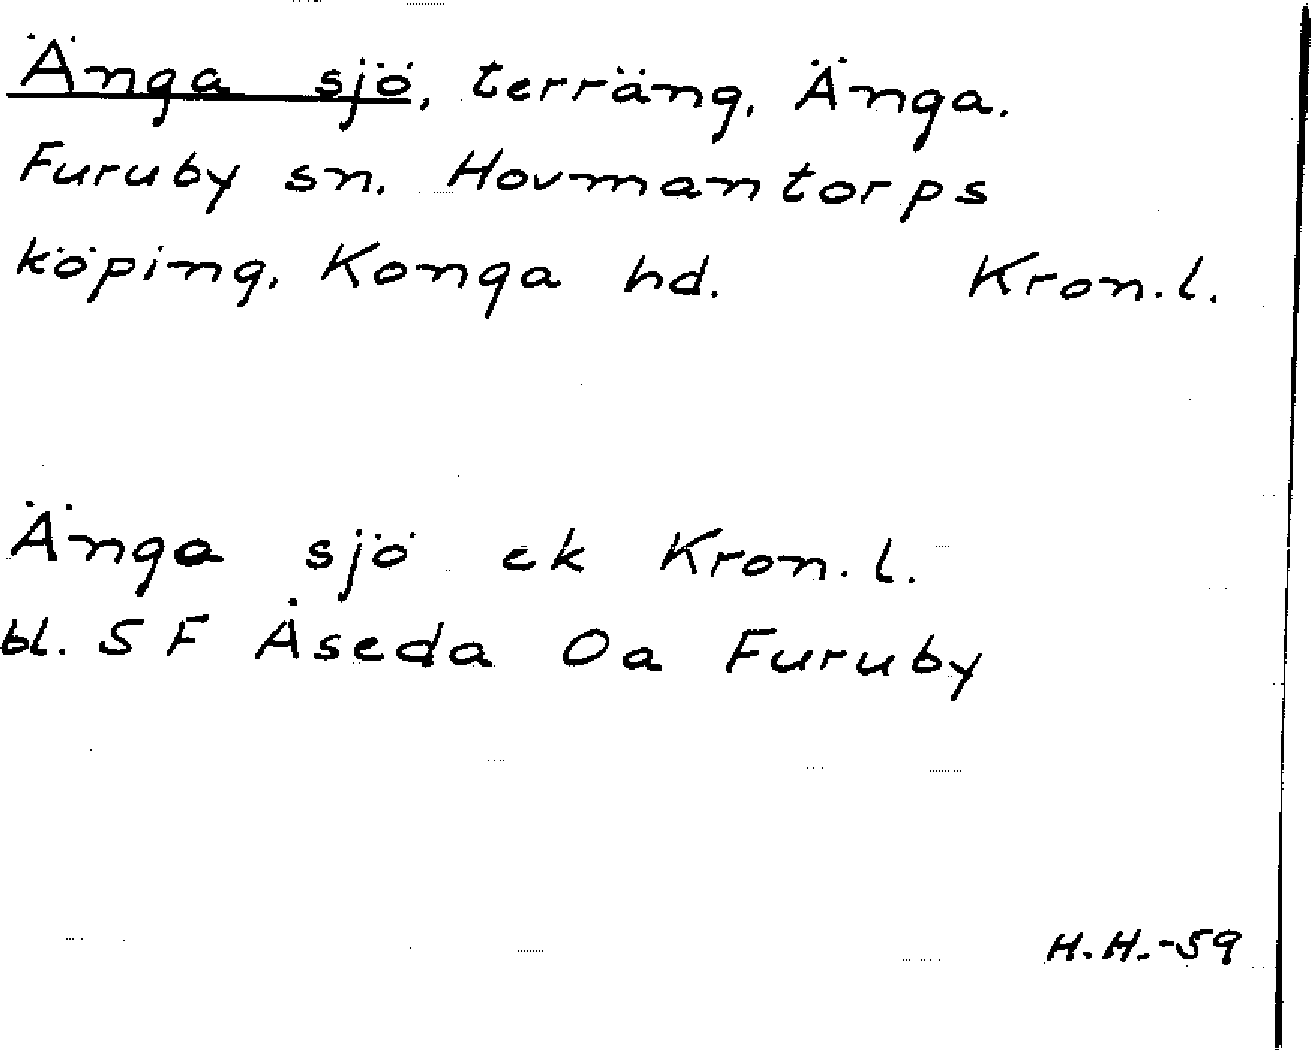 Änga sjö, terräng, Änga.
Furuby sn. Hovmantorps
köping, Konga hd. Kron.l.
Änga sjö ek Kron.l.
bl. 5 F Åseda Oa Furuby
H.H.-59